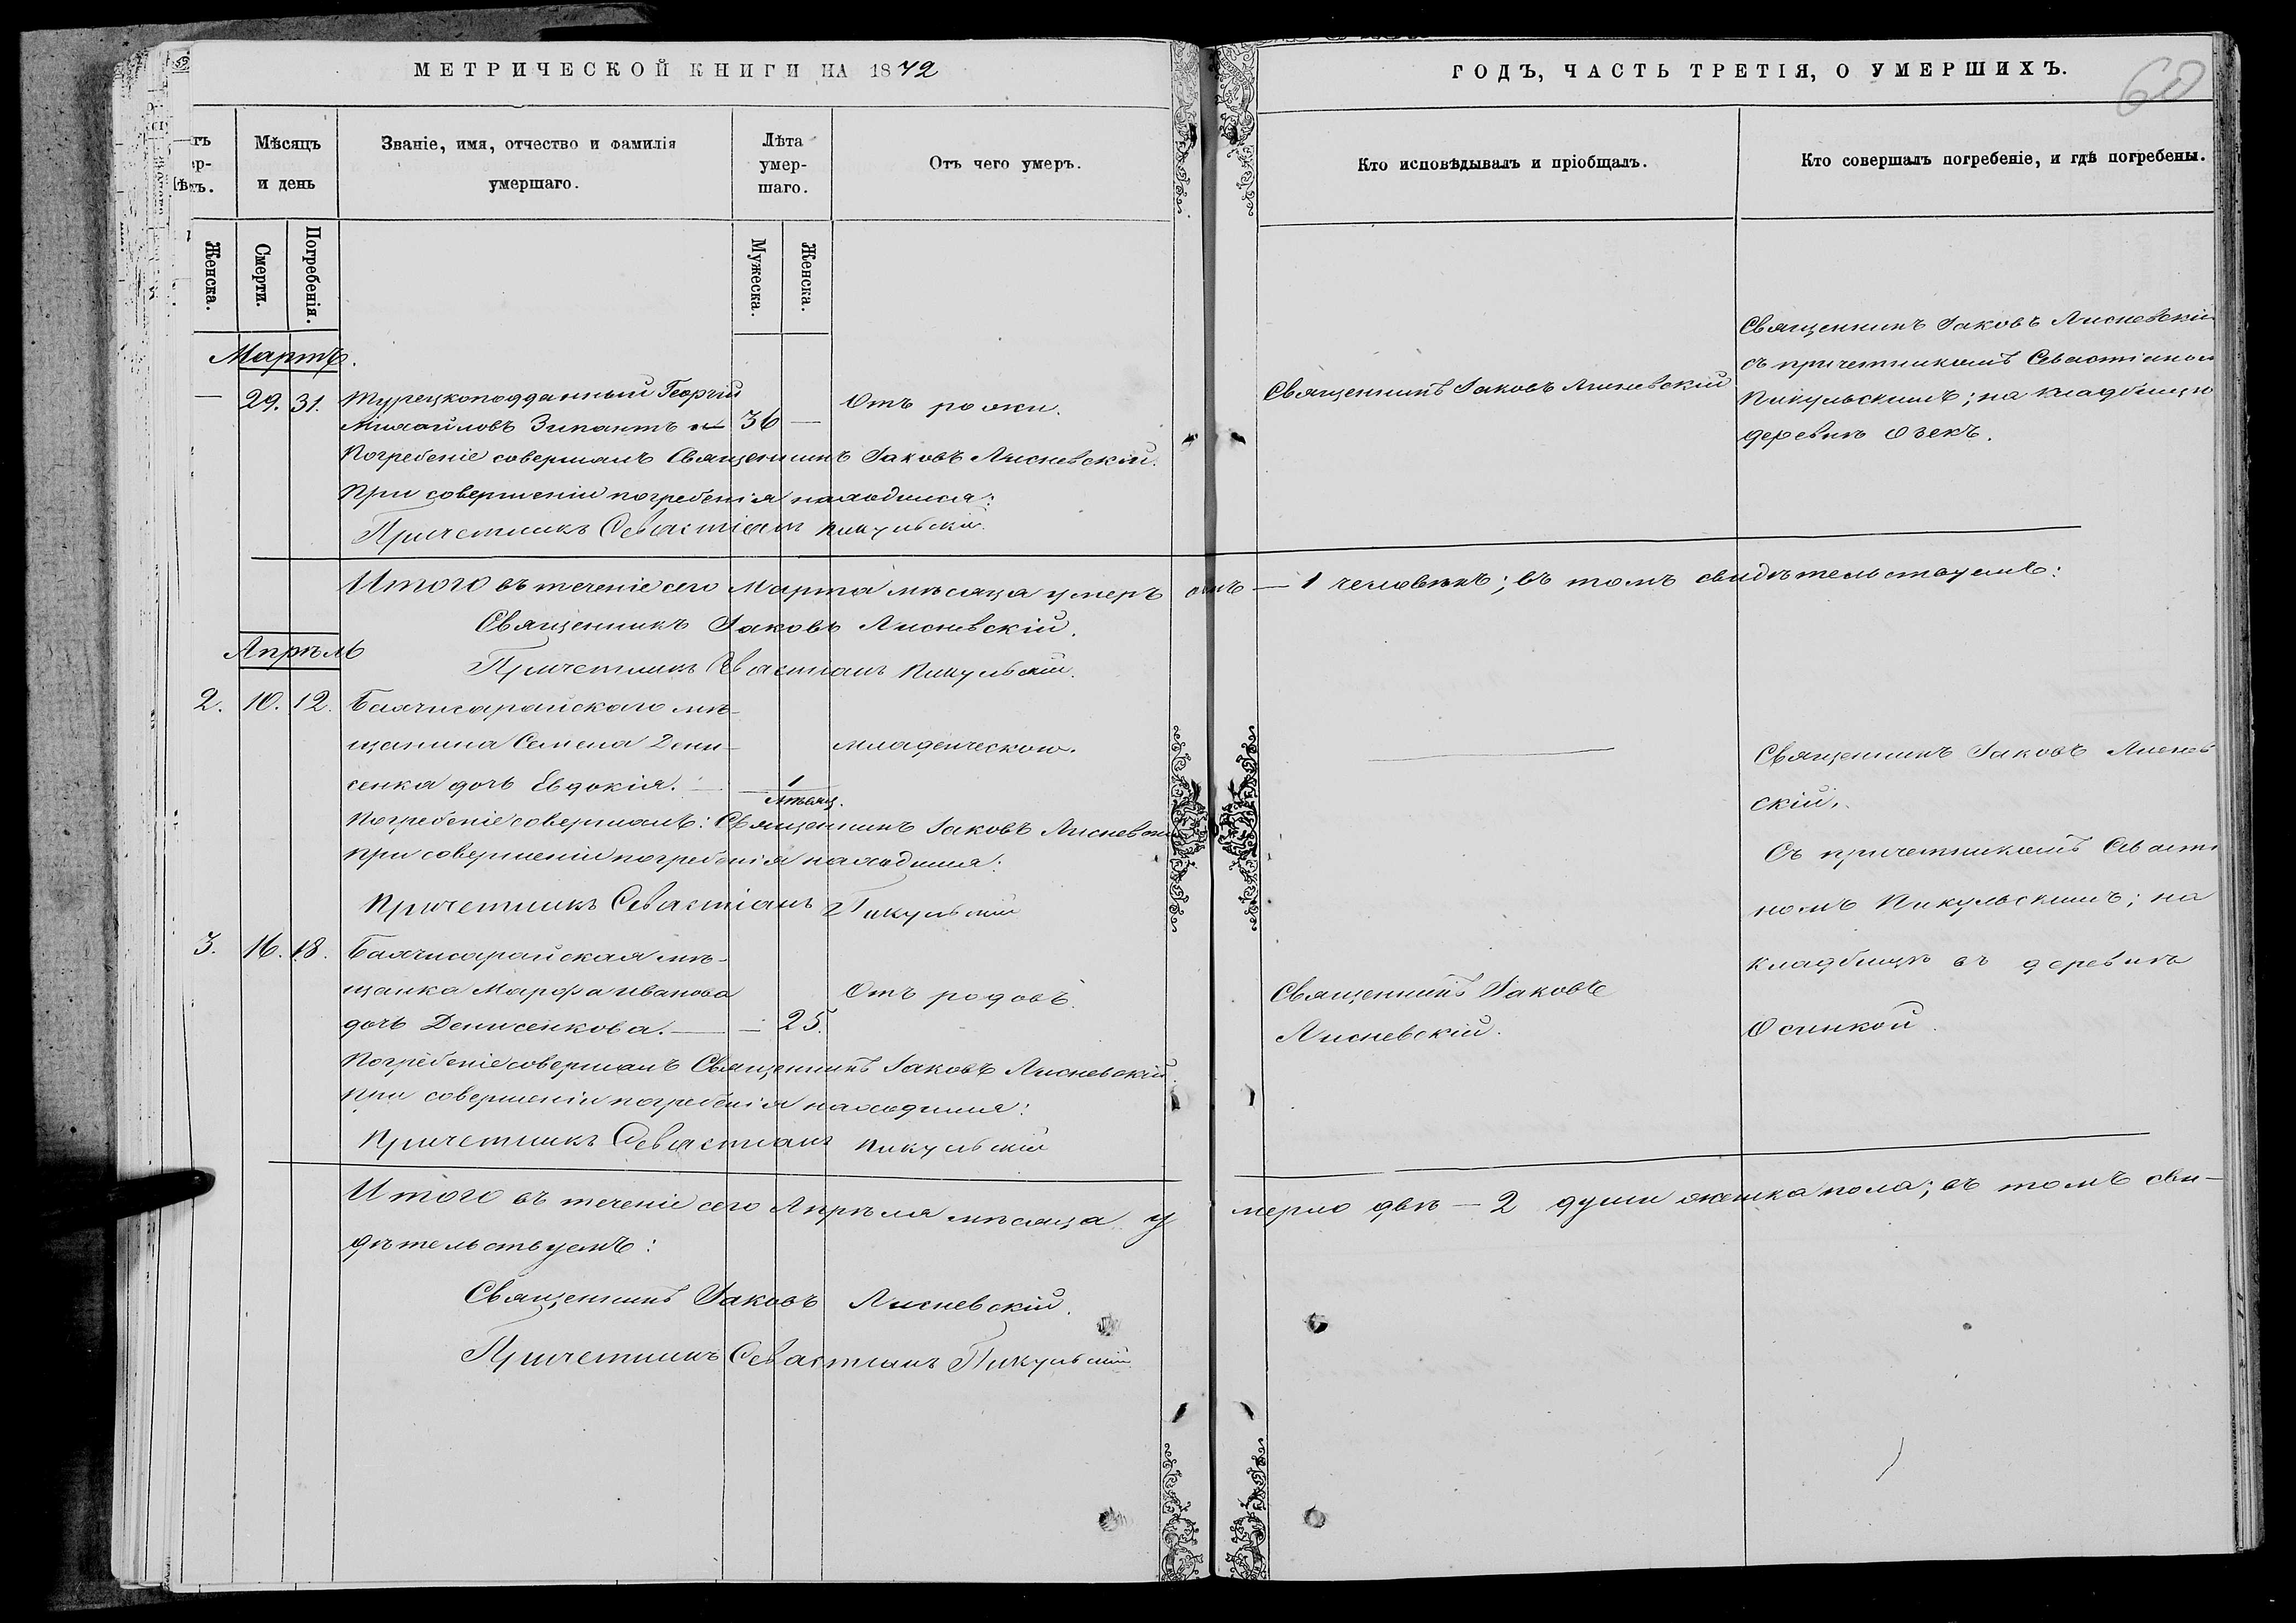 МЕТРИЧЕСКОЙ КНИГИ НА 1872
ГОДЪ, ЧАСТЬ ТРЕТІЯ, О УМЕРШИХЪ.
60
Мѣсяцъ и день
Званіе, имя, отчество и фамилія умершаго.
Лѣта умер-
шаго.
Отъ чего умеръ.
Кто исповѣдывалъ и пріобщалъ.
Кто совершалъ погребеніе, и гдѣ погребены.
Женска.
Смерти.
Погребенія.
Мужеска.
Женска.
Мартъ.
— 29. 31. Турецкоподданный Георгій
Михайловъ Зипантъ 36 —
Отъ рожи.
Священникъ Іаковъ Лисневскій
Священникъ Іаковъ Лисневскій
съ причетникомъ Севастіаном
Пикульскимъ; на кладбищѣ
деревни Озекъ.
Погребеніе совершалъ Священникъ Іаковъ Лисневскій.
При совершеніи погребенія находился:
Причетникъ Севастіанъ Пикульскій.
Итого въ теченіе сего Марта мѣсяца умеръ — 1 человѣкъ; въ томъ свидѣтельствуемъ:
Священникъ Іаковъ Лисневскій.
Причетникъ Севастіанъ Пикульскій.
Апрѣль
2. 10. 12. Бахчисарайскаго мѣ-
щанина Семена Дени-
сенка дочь Евдокія. — 1 мѣсяц.
младенческою.
Священникъ Іаковъ Лиснев
скій.
Съ причетникомъ Севасті
номъ Пикульскимъ; на
кладбищѣ въ деревнѣ
Осинкой.
Погребеніе совершалъ: Священникъ Іаковъ Лисневскі
при совершеніи погребенія находился:
Причетникъ Севастіанъ Пикульскій
3. 16. 18. Бахчисарайская мѣ-
щанка Марфа Иванова
дочь Денисенкова. — — 25.
Отъ родовъ.
Священникъ Іаковъ
Лисневскій.
Погребеніе совершалъ Священникъ Іаковъ Лисневскій.
При совершеніи погребенія находился:
Причетникъ Севастіанъ Пикульскій
Итого въ теченіе сего Апрѣля мѣсяца умерло двѣ — 2 души женска пола; въ томъ сви-
дѣтельствуемъ:
Священникъ Іаковъ Лисневскій.
Причетникъ Севастіанъ Пикульскій.